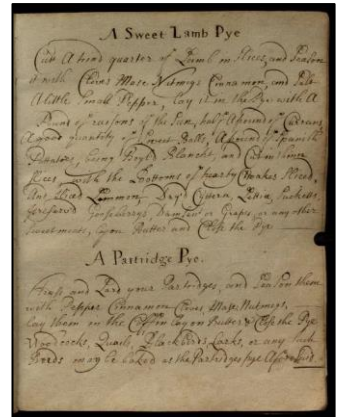 A Sweet Lamb Pye
Cut A hind quarter of Lamb in Slices, and Season
it with Cloves Mace Nutmegs Cinnamon, and Salt
A little Small Pepper, lay it in the Pye with A
Pound of raisons of the Sun, half A pound of Currans
A good quantity of Sweet Balls, A pound of Spanish
Potatoes, being Boyl'd Blancht, and Cut in
Slices, with the Bottoms of hearty Choakes Sliced,
And Sliced Lemmon, Dry'd Cittern, Sucketts,
Preserved Gooseberrys, or Grapes, or any other
Sweet meats, lay on Butter and Close the Pye
A Partridge Pye.
Truss and Lard your Partridges, and Season them
with Pepper Cinnamon Cloves, Mace, Nutmegs,
lay them in the Coffin lay on Butter & Close the Pye
Woodcocks, Quails, Blackbirds, Larks, or any Such
Birds may be baked as the Partridges pye